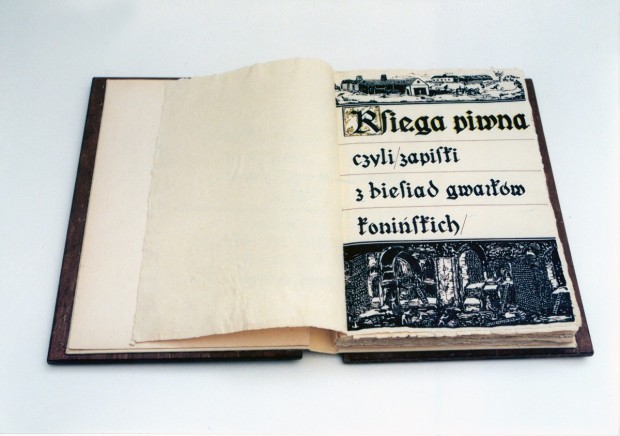 Księga piwna
czyli/zapiski
z biesiad gwarków
konińskich/